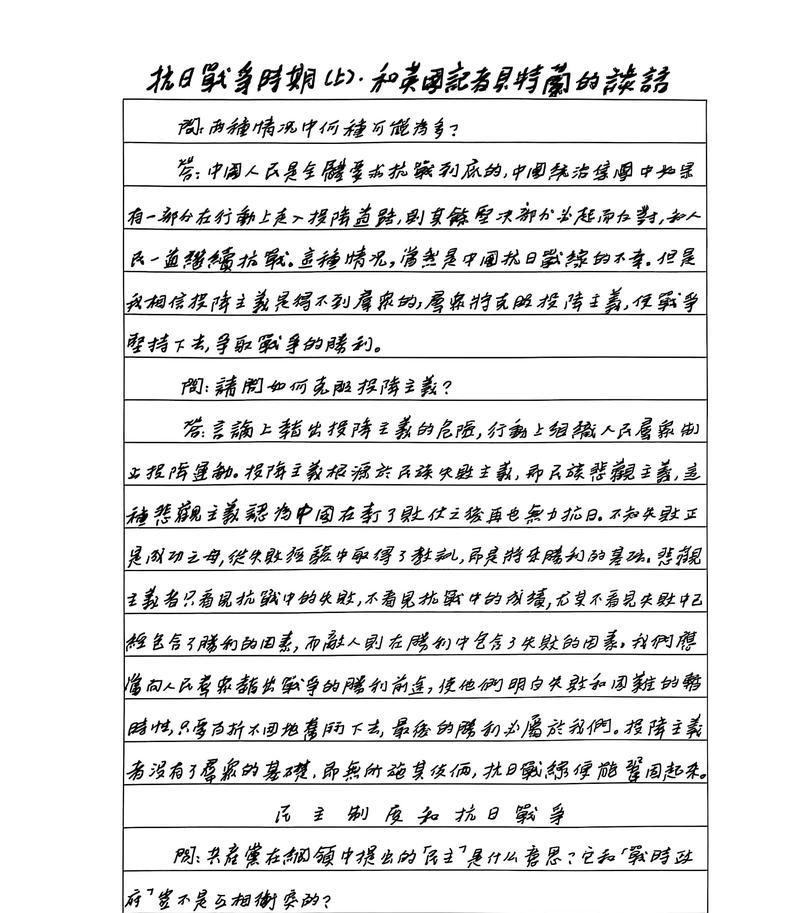 抗日戰爭時期(上)·和英國記者貝特蘭的談話
問:兩種情况中何種可能爲多?
答:中國人民是全體要求抗戰到底的,中國統治集團中如果
有一部分在行動上走入投降道路,則其餘堅决部分必起而反對,和人
民一道繼續抗戰。這種情况,當然是中國抗日戰線的不幸。但是
我相信投降主義是得不到羣衆的,羣衆將克服投降主義,使戰爭
堅持下去,爭取戰爭的勝利。
問:請問如何克服投降主義?
答:言論上指出投降主義的危險,行動上組織人民羣衆制
止投降運動。投降主義根源於民族失敗主義,即民族悲觀主義,這
種悲觀主義認爲中國在打了敗仗之後再也無力抗日。不知失敗正
是成功之母,從失敗經驗中取得了教訓,即是將來勝利的基礎。悲觀
主義者只看見抗戰中的失敗,不看見抗戰中的成績,尤其不看見失敗中已
經包含了勝利的因素,而敵人則在勝利中包含了失敗的因素。我們應
當向人民羣衆指出戰爭的勝利前途,使他們明白失敗和困難的暫
時性,只要百折不回地奮鬥下去,最後的勝利必屬於我們。投降主義
者没有了羣衆的基礎,即無所施其伎倆,抗日戰線便能鞏固起來。
民主制度和抗日戰爭
問:共產黨在綱領中提出的「民主」是什么意思?它和「戰時政
府」豈不是互相衝突的?